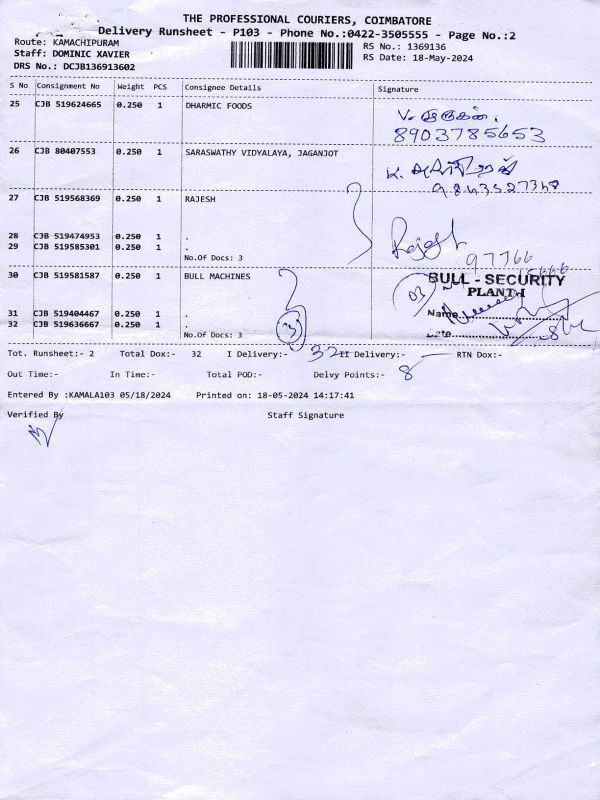 THE PROFESSIONAL COURIERS, COIMBATORE
Delivery Runsheet - P103 - Phone No.:0422-3505555 - Page No.:2
Route: KAMACHIPURAM
RS No.: 1369136
Staff: DOMINIC XAVIER
RS Date: 18-May-2024
DRS No.: DCJB136913602
S No Consignment No Weight PCS Consignee Details Signature
25 CJB 519624665 0.250 1 DHARMIC FOODS
8903785653
26 CJB 80407553 0.250 1 SARASWATHY VIDYALAYA, JAGANJOT
27 CJB 519568369 0.250 1 RAJESH
Rajesh
28 CJB 519474953 0.250 1 .
29 CJB 519585301 0.250 1 .
No.Of Docs: 3
97766
30 CJB 519581587 0.250 1 BULL MACHINES
BULL - SECURITY
PLANT-I
03
Name
31 CJB 519404467 0.250 1 .
32 CJB 519636667 0.250 1 .
3
Date
No.Of Docs: 3
Tot. Runsheet:- 2 Total Dox:- 32 I Delivery:- 32 II Delivery:- RTN Dox:-
Out Time:- In Time:- Total POD:- Delvy Points:- 8
Entered By :KAMALA103 05/18/2024 Printed on: 18-05-2024 14:17:41
Verified By Staff Signature